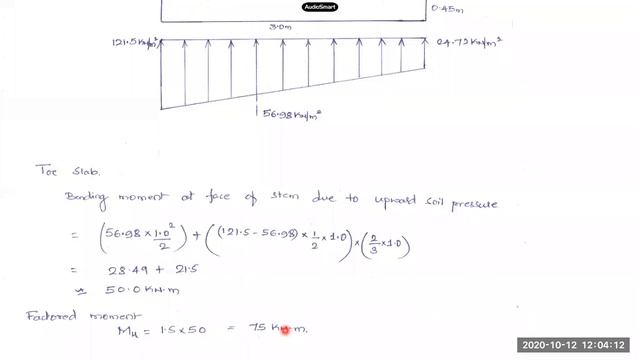 AudioSmart
0.45m
3.0m
121.5 KN/m²
24.72 KN/m²
56.98 KN/m²
Toe slab.
Bending moment at face of stem due to upward soil pressure
= (56.98 × 1.0²/2) + ((121.5 - 56.98) × 1/2 × 1.0) × (2/3 × 1.0)
= 28.49 + 21.5
≈ 50.0 KN.m
Factored moment
Mu = 1.5 × 50 = 75 KN.m.
2020-10-12 12:04:12